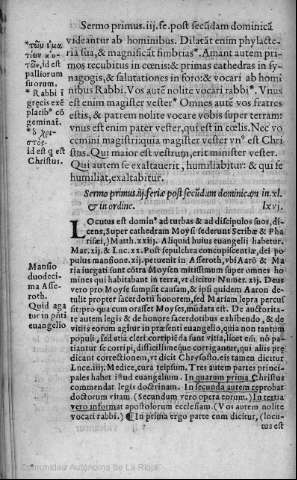 Sermo primus. iij. fe. post secūdam dominicā
videantur ab hominibus. Dilatāt enim phylacte-
ria sua, & magnificāt fimbrias*. Amant autem pri-
mos recubitus in cœnis: & primas cathedras in sy-
nagogis, & salutationes in foro: & vocari ab homi
nibus Rabbi. Vos autē nolite vocari rabbi*. Vnus
est enim magister vester* Omnes autē vos fratres
estis, & patrem nolite vocare vobis super terram:
vnus est enim pater vester, qui est in cœlis. Nec vo
cemini magistri, quia magister vester vnus est Chri
stus. Qui maior est vestrum, erit minister vester.
Qui autem se exaltauerit, humiliabitur: & qui se
humiliat, exaltabitur.
id est
palliorum
suorum.
* Rabbi i
gręcis exē
plarib* cō
geminat.
id e q est
Christus.
Sermo primus. iij. feriæ post secūdam dominicam in. xl.
& in ordine. lxvj.
LOcutus est domin* ad turbas & ad discipulos suos, di-
cens, Super cathedram Moysi sederunt Scribæ & Pha
risæi,) Matth. xxiij. Aliquid huius euangelii habetur.
Mar. xij. & Luc. xx. Post sepulchra concupiscentiæ, dei po-
pulus mansione. xij. peruenit in Asseroth, vbi Aarō & Ma
ria iurgati sunt cōtra Moysen mitissimum super omnes ho
mines qui habitabant in terra, vt dicitur Numer. xij. Deus
vero pro Moyse sumpsit causam, & ipsi quidem Aaron de-
tulit propter sacerdotii honorem, sed Mariam lepra percus
sit: pro qua cum orasset Moyses, mūdata est. De auctorita-
te autem legis & de honore sacerdotibus exhibendo, & de
vitiis eorum agitur in præsenti euangelio, quia non tantum
populi, sed etia cleri corripiēda sunt vitia, licet etsi nō pa-
tiantur se corripi, difficilimeque corrigantur, qui aliis præ
dicant correctionem, vt dicit Chrysosto. eis tamen dicitur
Luce. iiij. Medice, cura teipsum. Tres autem partes princi-
pales habet istud euangelium. In quarum prima Christus
commendat legis doctrinam. In secunda autem reprobat
doctorum vitam (Secundum vero opera eorum.) In tertia
vero informat apostolorum ecclesiam. (Vos autem nolite
vocari rabbi.) ¶ In prima ergo parte cum dicitur, (locu-
tus est
Mansio
duodeci-
ma Asse-
roth.
Quid aga
tur in pnti
euangelio
Comunidad Autónoma de La Rioja